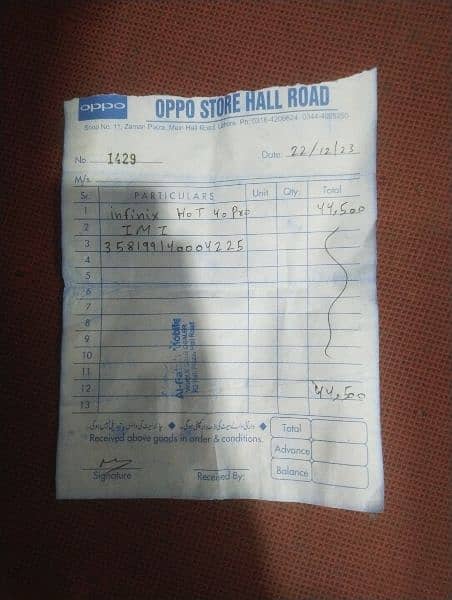 oppo OPPO STORE HALL ROAD
Shop No. 11, Zaman Plaza, Main Hall Road, Lahore. Ph:
No 1429 Date: 22/12/23
M/s.
Sr. PARTICULARS Unit Qty. Total
1 infinix HOT 40 Pro 44,500
2 IMI
3 358199140004225
4
5
6
7
8
9
10
11
12 44,500
13
Total
Received above goods in order & conditions.
Advance
Balance
Signature Received By: